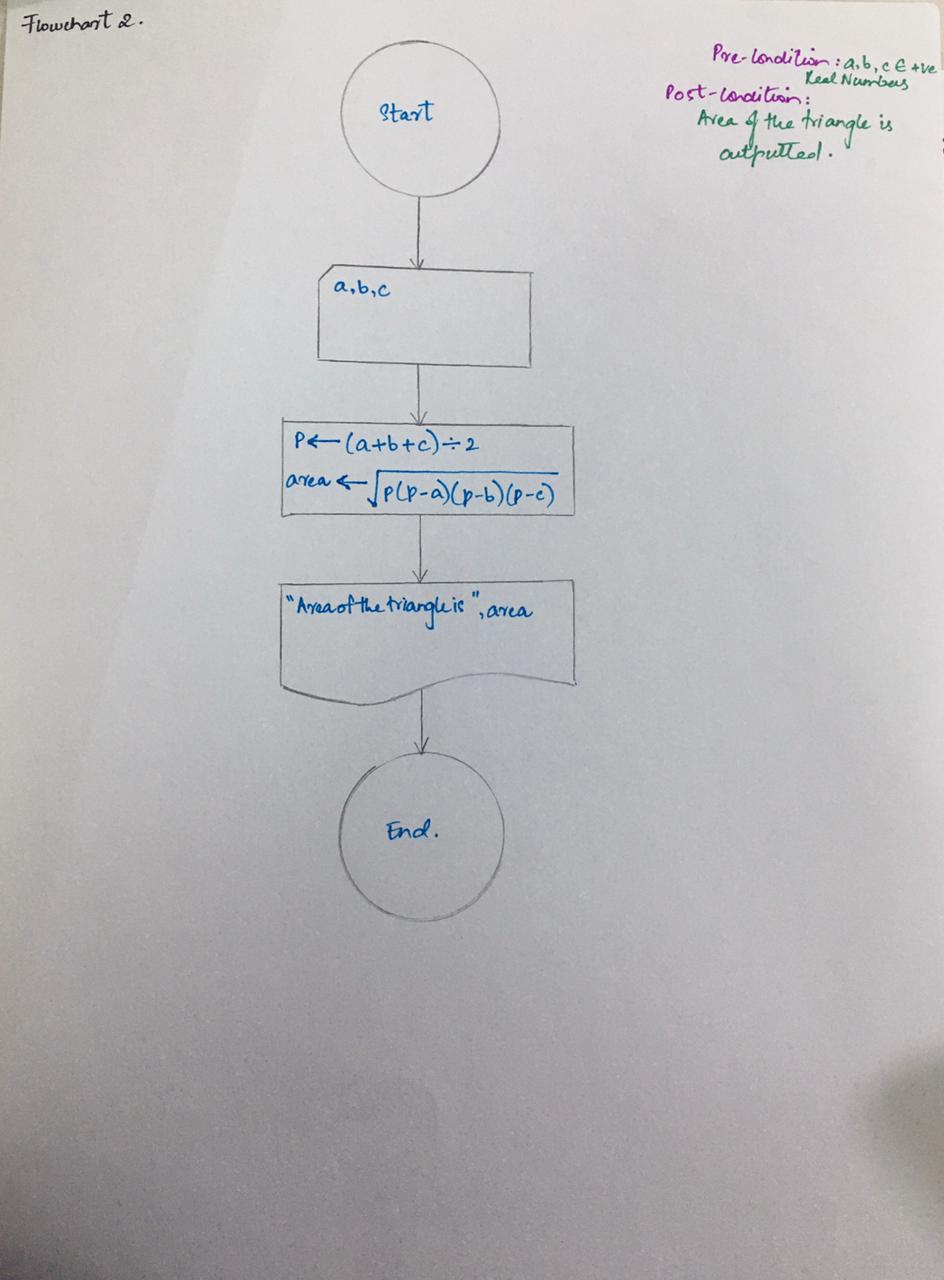 Flowchart 2.
Pre-Condition: a, b, c ∈ +ve
Real Numbers
Post-Condition:
Area of the triangle is
outputted.
Start
a, b, c
P ← (a+b+c) ÷ 2
area ← √p(p-a)(p-b)(p-c)
"Area of the triangle is ", area
End.